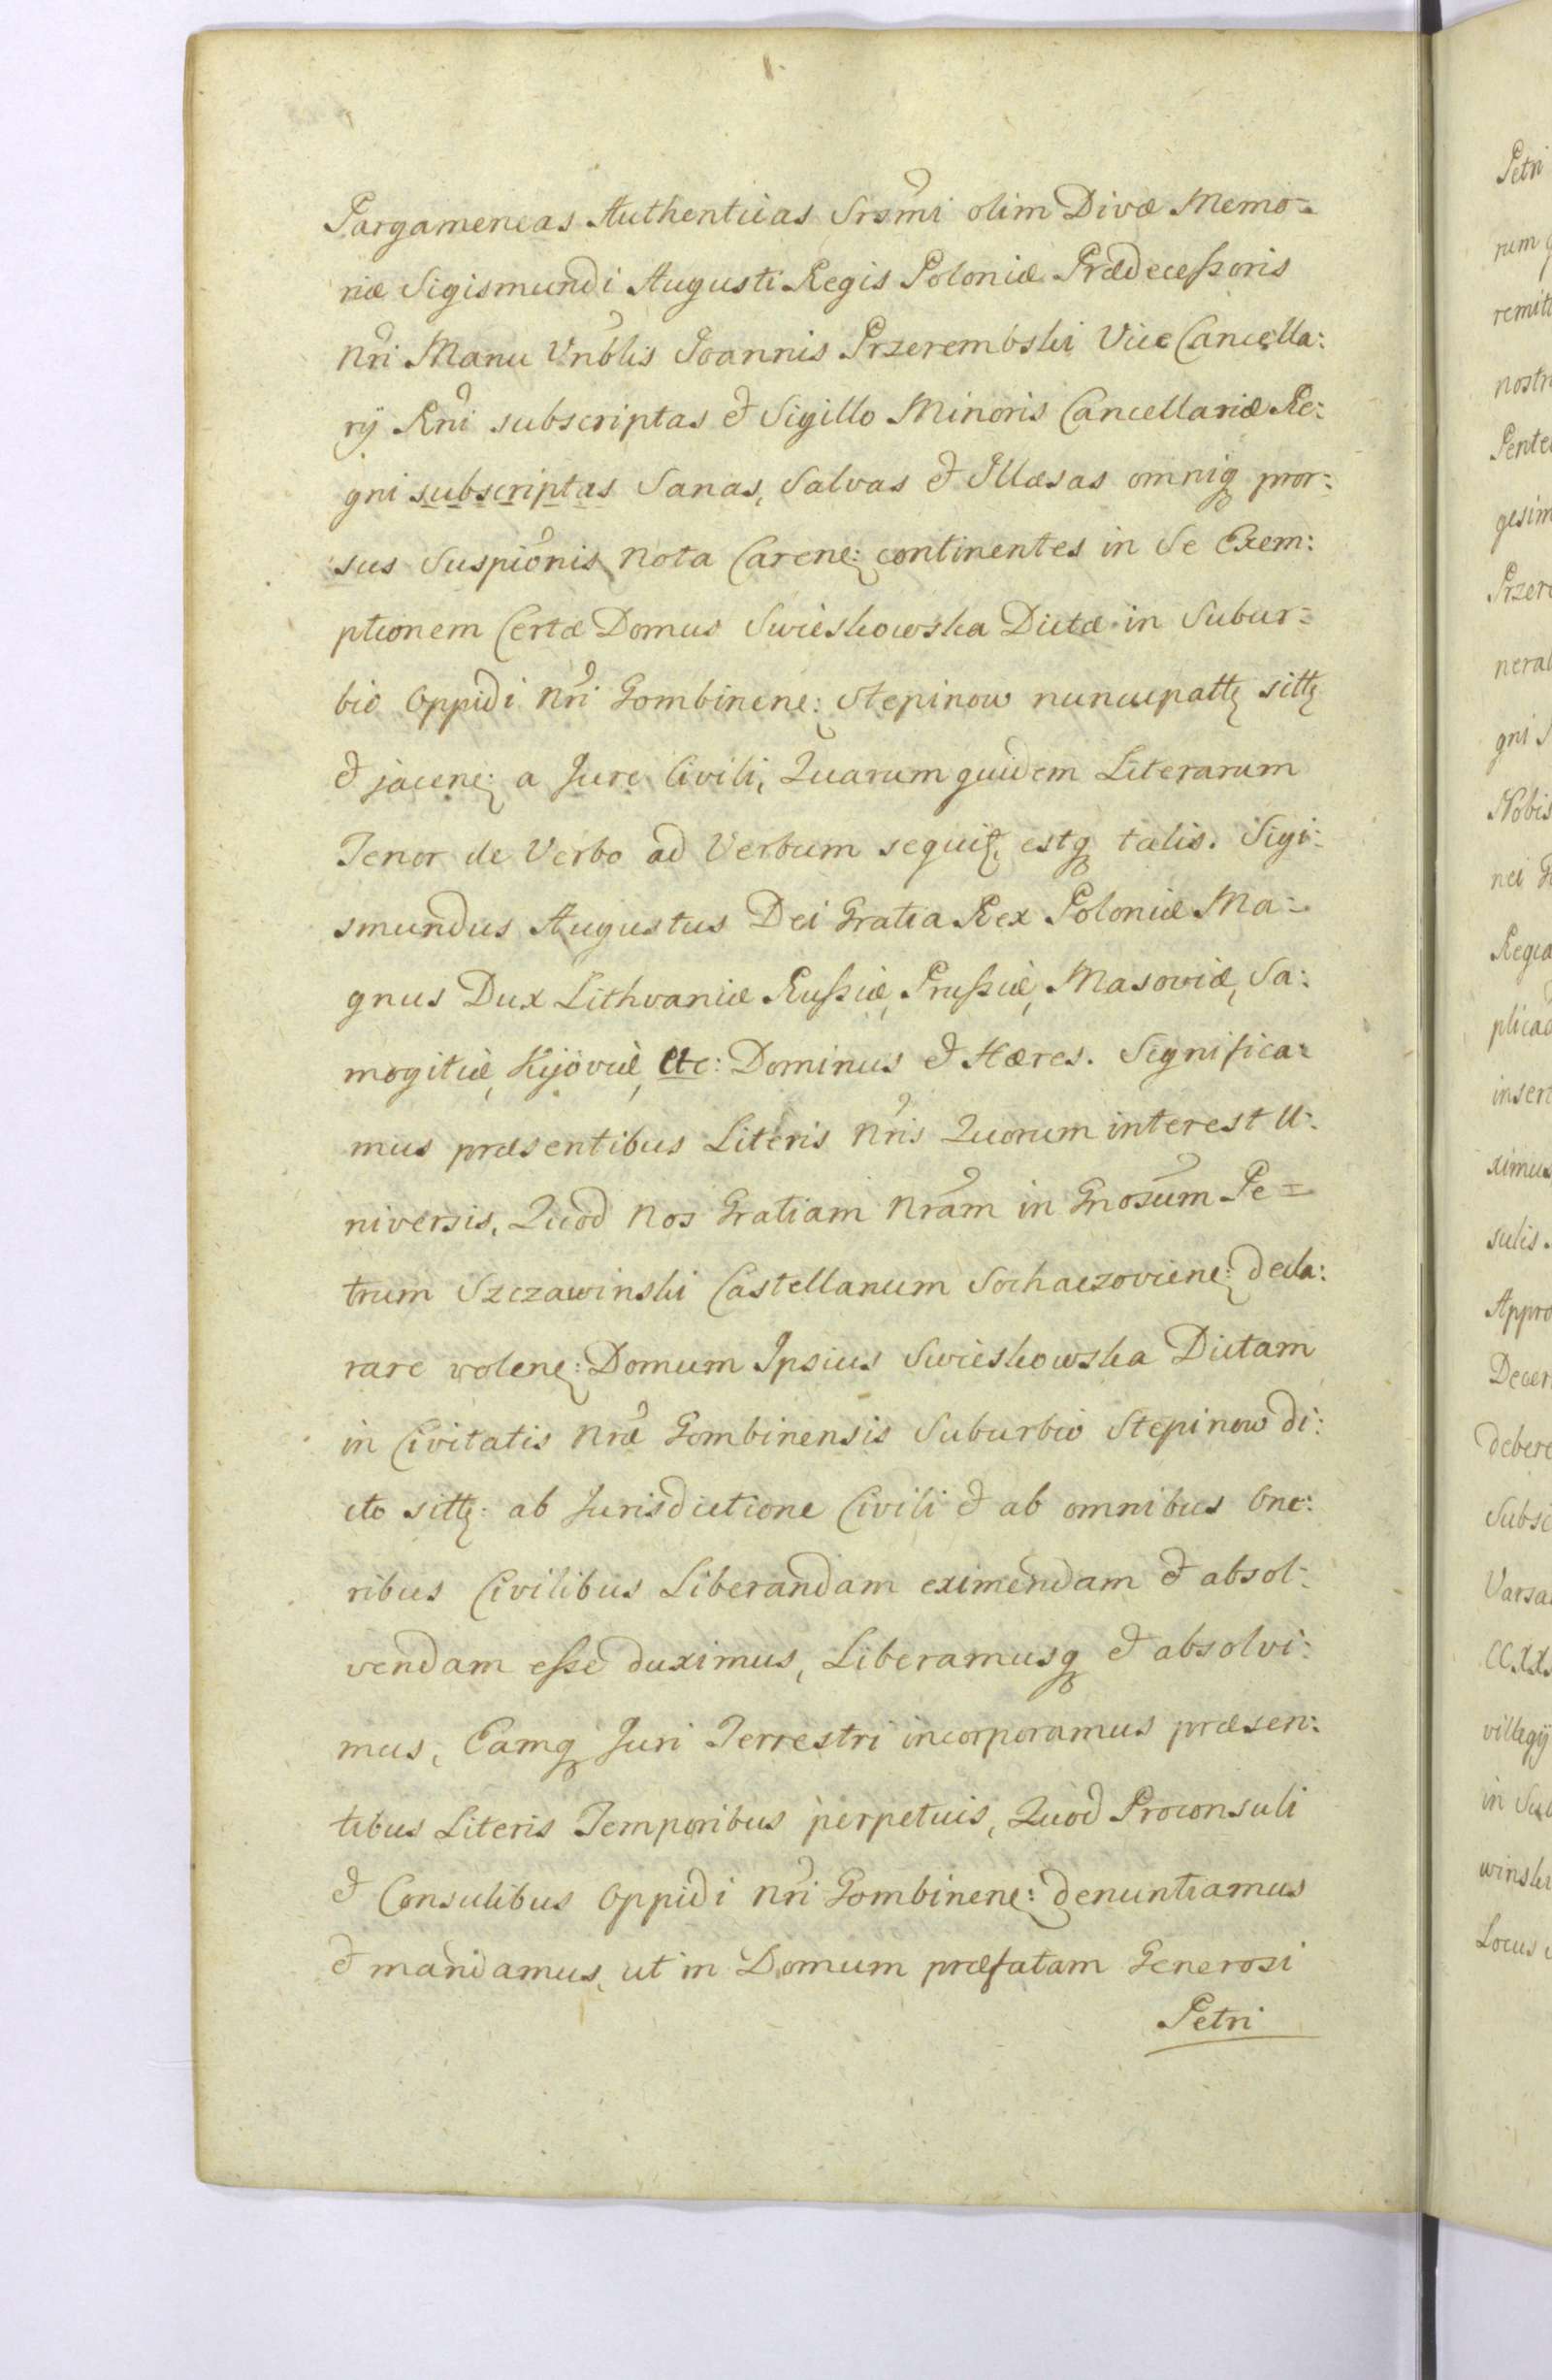 Pargameneas Authenticas Srsmi olim Divæ Memo=
riæ Sigismundi Augusti Regis Poloniæ Prædecessoris
Nri Manu Vnblis Joannis Przerembski Vice Cancella:
rÿ Rni subscriptas et Sigillo Minoris Cancellariæ Re:
gni subscriptas Sanas, Salvas et Illæsas omniq pror:
sus Suspionis Nota Caren: continentes in Se Exem:
ptionem Certæ Domus Swieskowska Dictæ in Subur=
bio Oppidi Nri Gombinen: Stepinow nuncupatt sitt
et jacen: a Jure Civili, Quarum quidem Literarum
Tenor de Verbo ad Verbum sequit, estq talis. Sigi:
smundus Augustus Dei Gratia Rex Poloniæ Ma=
gnus Dux Lithvaniæ Russiæ, Prussiæ, Masoviæ, Sa:
mogitiæ, Kijoviæ, etc: Dominus et Hæres. Significa=
mus præsentibus Literis Nris Quorum interest U:
niversis, Quod Nos Gratiam Nram in Gnosum Pe=
trum Szczawinski Castellanum Sochaczovien: decla:
rare volen: Domum Ipsius Swieskowska Dictam
in Civitatis Nræ Gombinensis Suburbio Stepinow di:
cto sitt: ab Jurisdictione Civili et ab omnibus One:
ribus Civilibus Liberandam eximendam et absol:
vendam esse duximus, Liberamusq et absolvi:
mus, Eamq Juri Terrestri incorporamus præsen:
tibus Literis Temporibus perpetuis, Quod Proconsuli
et Consulibus Oppidi Nri Gombinen: denuntiamus
et mandamus, ut in Domum præfatam Generosi
Petri
Petri
rum
remitt
nostr
gesim
Przer
nerab
gni S
Nobis
nei G
Regia
plicao
insert
ximus
sulis.
Appro
Decer
debere
Subsc
Varsa
CCXX
villegÿ
in Sub
winski
Locus